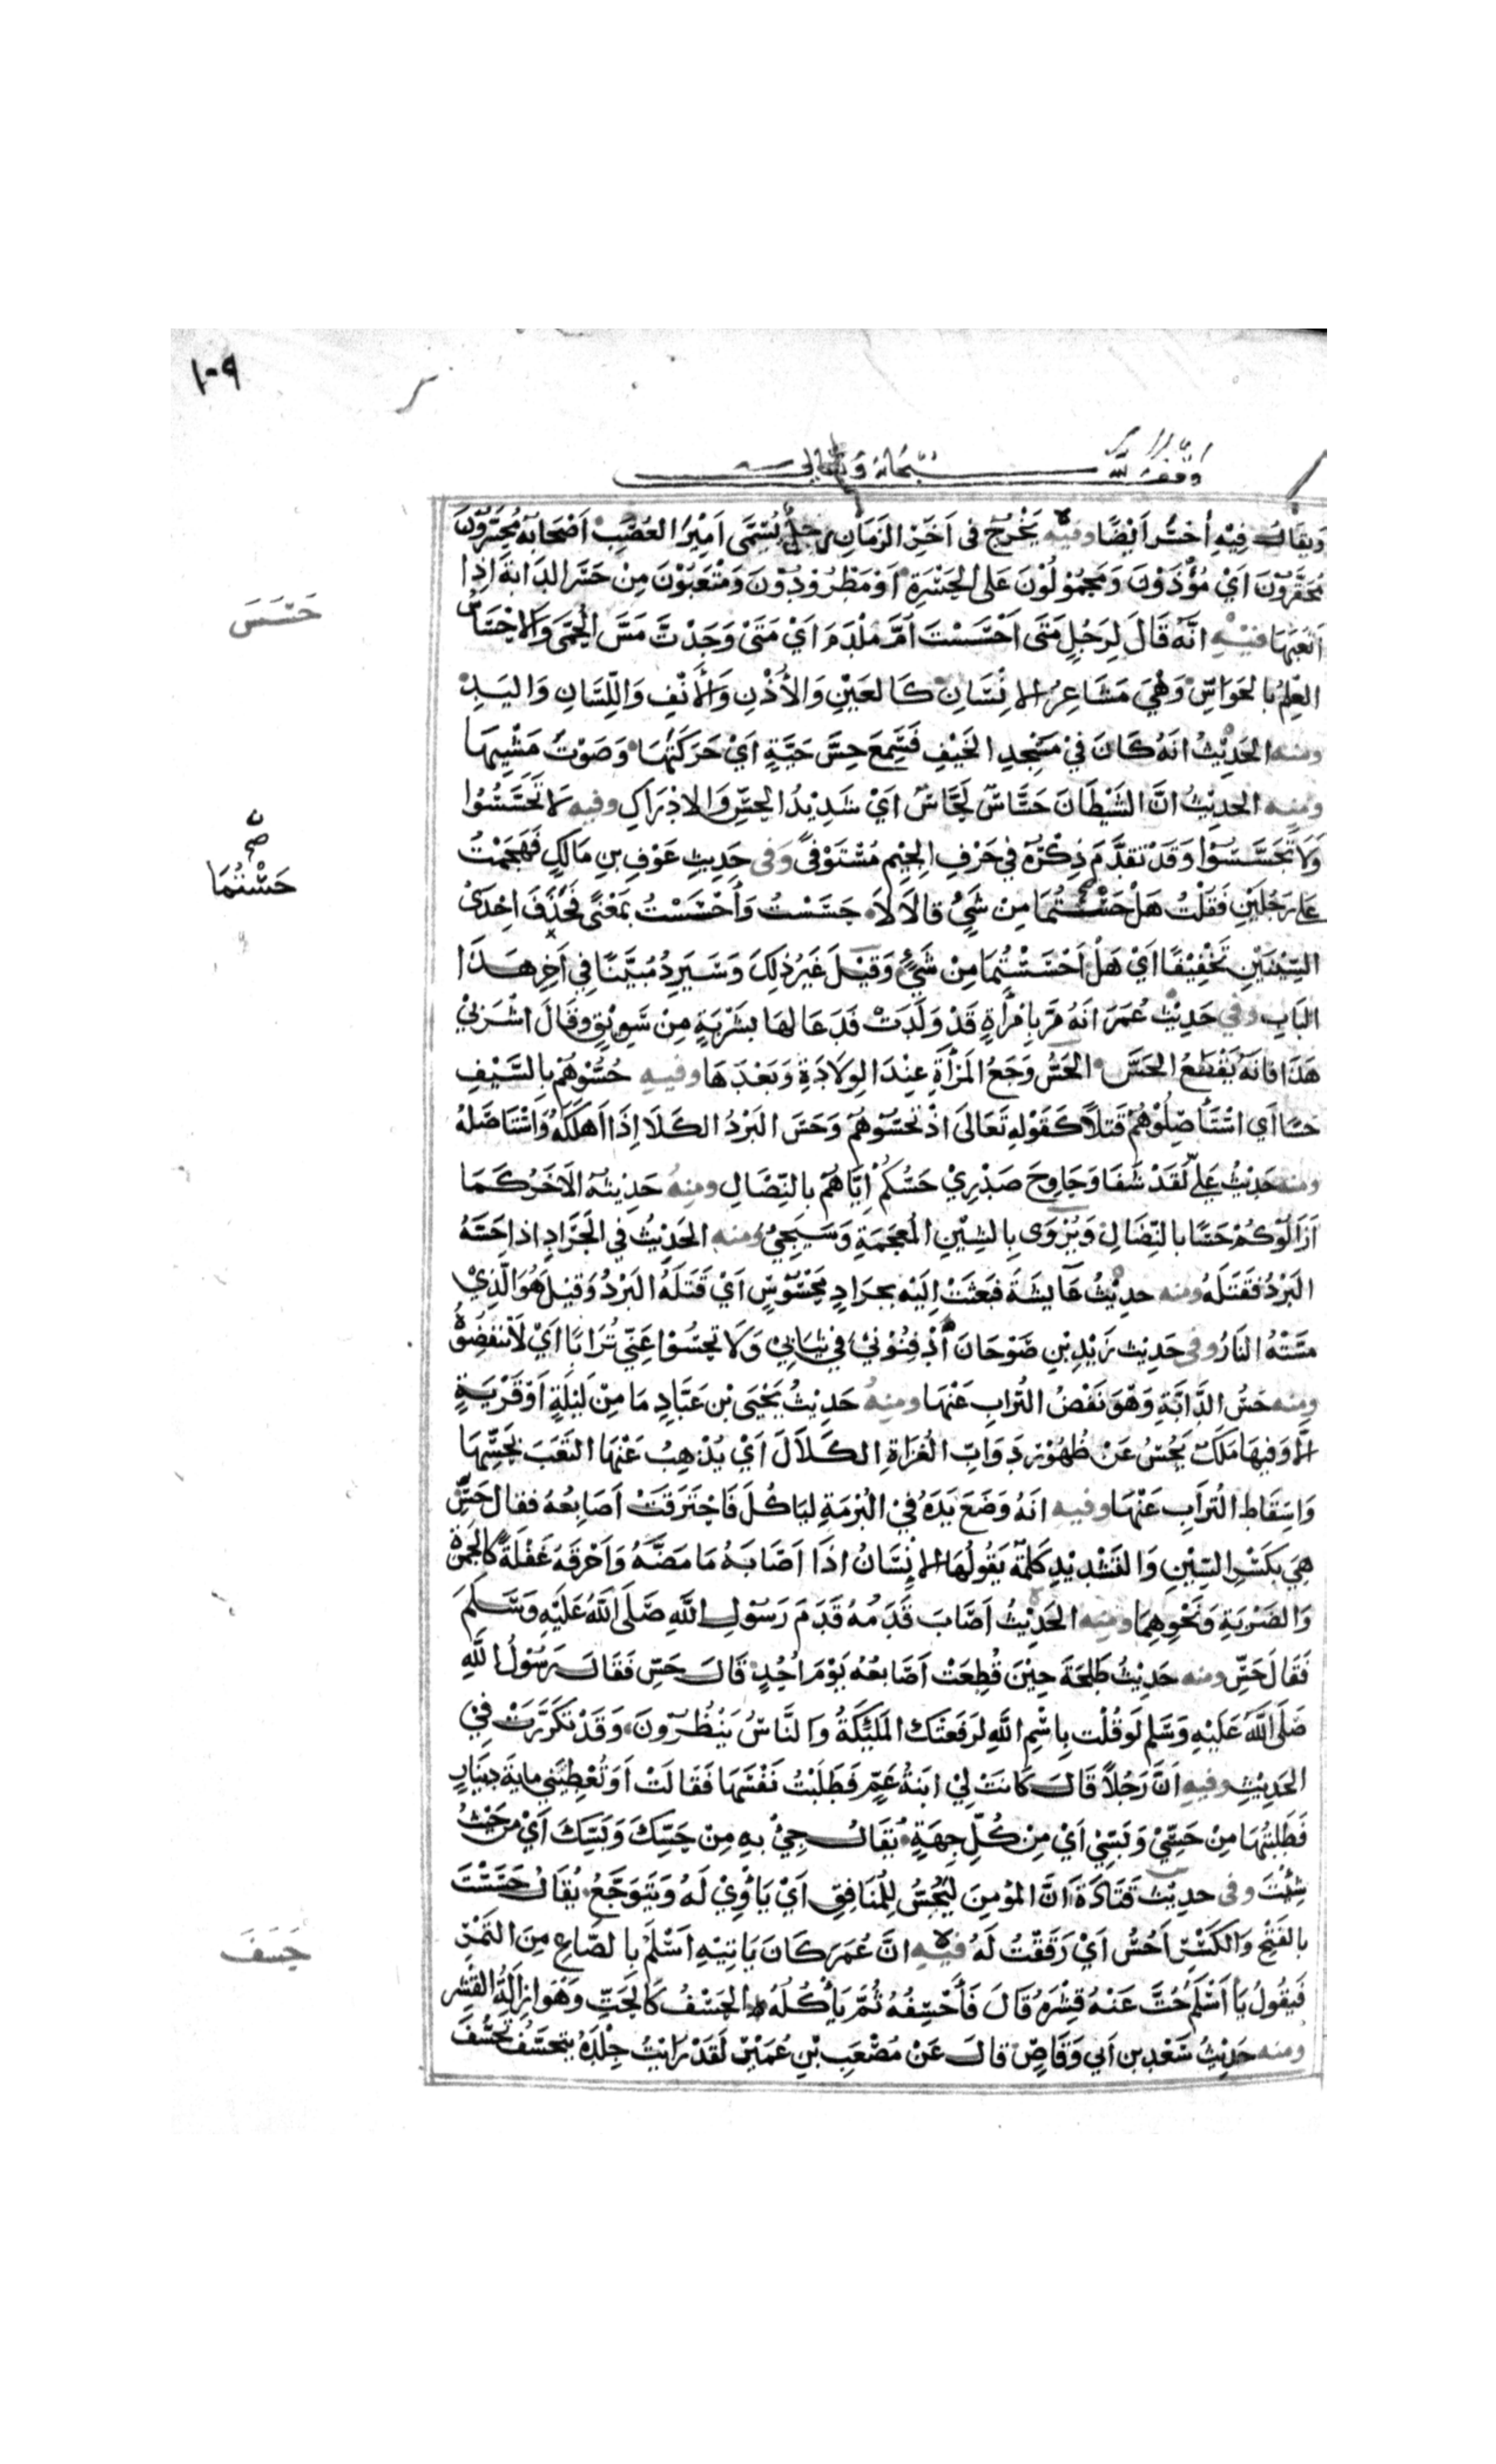 ١٠٩
وقف لله سبحانه وتعالى
ويقال فيه أحسر أيضا وفيه يَخْرُج فى اَخر الزَمَانِ رجلٌ يُسَمَّى اَمِيْرَ العُصَبِ اَصْحَابُهُ مُحَسَّرُوْنَ
مُحَقَّرُوْنَ اَيْ مُؤْذَوْنَ وَمَحْمُوْلُوْنَ عَلى الحَسْرَةِ اَوْ مَطْرُوْدُوْنَ وَمُتْعَبُوْنَ مِنْ حَسَر الدَابَةَ اِذَا
اَتْعَبَهَا فِيْهِ انَّهُ قَالَ لِرَجُلٍ مَتَى اَحْسَسْتَ اُمَّ مِلْدَمَ اَيْ مَتَى وَجَدْتَّ مَسَّ الحُمَّى وَالاِحْسَاسُ
العِلْمُ بالحَوَاسّ وَهْيَ مَشَاعِرُ الانْسَانِ كَالعَيْنِ وَالأُذْنِ وَالأَنْفِ وَاللِّسَانِ وَاليَدِ
ومنه الحَدِيْثُ انَهُ كَانَ فيْ مَسْجِدِ الخَيْفِ فَسَمِعَ حِسَّ حَيَّةٍ اَيْ حَرَكَتَهَا وَصَوْتَ مَشْيِهَا
ومنه الحديْثُ انَّ الشَيْطَانَ حَسَّاسٌ لَحَّاسٌ اَيْ شَدِيْدُ الحِسِّ وَالادْرَاكِ وفيه لاَ تَحَسَّسُوْا
وَلاَ تَجَسَّسُوْا وَقَدْ تقَدَّمَ ذِكْرُهُ فى حَرْفِ الجِيْم مُسْتَوْفًى وَفى حَدِيثِ عَوْفِ بنِ مَالِكٍ فَهَجَمْتُ
على رَجُلَيْنِ فَقُلْتُ هَلْ حَسْتُمَا مِنْ شَيْءٍ قالاَ لاَ حَسَسْتُ وَأَحْسَسْتُ بمَعْنًى فحُذِفَ اِحْدَى
السِّيْنَيْنِ تَخْفِيْفًا اَيْ هَلْ اَحْسَسْتُمَا مِنْ شَيْءٍ وَقيْلَ غَيْرُ ذلِكَ وَسَيَرِدُ مُبَيَّنًا فِي اَخِرِ هَذَا
البَابِ وَفي حَدِيْثِ عُمَرَ انَهُ مَرَّ بامْرَأةٍ قَدْ وَلَدَتْ فَدَعَا لهَا بشَرْبَةٍ مِنْ سَوِيْقٍ وقَالَ اشْرَبيْ
هَذَا فانَهُ يَقْطَعُ الحَسَّ الحَسُّ وَجَعُ المَرْأَةِ عِنْدَ الوِلاَدَةِ وَبَعْدَهَا وفيه حُسُّوْهُمْ بِالسَّيْفِ
حسًا اَي اسْتَأصِلُوْهُمْ قَتْلاً كَقَوْلِهِ تَعَالَى اذْ تَحُسُّوْنهُمْ وَحَسَّ البَرْدُ الكَلَأ اِذَا اَهْلَكَهُ وَاسْتَاصَلَهُ
ومنه حَدِيْثُ عَلِيّ لَقَدْ شَفَا وَحَاوِحَ صَدْرِيْ حَسُّكُمْ اِيَّاهُمْ بالنِّصَالِ ومنهُ حَدِيثُه الاَخَرُ كَمَا
اَزَالُوْكُمْ حَسًّا بالنِّصَالِ وَيُرْوَى بالشِيْنِ المُعْجَمَةِ وَسَيَجِيْ ومنه الحَدِيْثُ في الجَرَادِ اذا حَسَّهُ
البَرْدُ فَقَتَلَهُ ومنه حديْثُ عَايشَةَ فبَعَثَتْ اِلَيْه بجرَادٍ مَحْسُوْسٍ اَيْ قَتَلَهُ البَرْدُ وَقيْلَ هُوَ الَّذِيْ
مَسَّتْهُ النَارُ وفى حَدِيْثِ زَيْدِ بْنِ صُوْحَانَ ادْفِنُوْنيْ فى ثيَابيْ وَلاَ تحُسُّوْا عَنِّي تُرَابًا اَيْ لاَ تَنْفُضُوْهُ
ومنه حَسُّ الدَّابَّةِ وَهُوَ نَفْضُ التُرَابِ عَنْهَا ومنهُ حَدِيْثُ يَحْيَى بْن عَبَّادٍ مَا مِنْ لَيْلَةٍ اَوْ قَرْيَةٍ
الاَّ وَفِيْهَا مَلَكٌ يَحُسُّ عَنْ ظُهُوْر دَوَابّ الغُزَاةِ الكَلاَلَ اَيْ يُذْهِبُ عَنْهَا التَعَبَ بحَسِّهَا
وَاِسْقَاطِ التُرَابِ عَنْهَا وفيه انَهُ وَضَعَ يَدَهُ فِيْ البُرْمَةِ ليَاكُلَ فَاحْتَرَقَتْ اَصَابِعُهُ فقال حَسِّ
هِيَ بكَسْرِ السِّيْنِ وَالتَشْدِيْدِ كَلِمَةٌ يَقُولُهَا الانْسَانُ اذَا اَصَابَهُ مَا مَضَّهُ وَاَحْرَقَهُ غَفْلَةً كَالجَمْرَةِ
وَالضَرْبَةِ وَنَحْوِهِمَا ومنه الحَدِيْثُ اَصَابَ قَدَمُهُ قَدَمَ رَسُوْلِ اللّهِ صَلَى اللهُ عَلَيْهِ وَسَلَّمَ
فَقَالَ حَسِّ ومنه حَدِيْثُ طَلحَةَ حِيْنَ قُطِعَتْ اَصَابعُهُ يَوْمَ اُحُدٍ قَالَ حَسِّ فَقَالَ رَسُوْلُ اللّهِ
صَلَى اللهُ عَلَيْهِ وَسَلم لَوْ قُلْتَ بِاسْمِ اللّهِ لَرَفَعَتْكَ المَلئِكَةُ وَالنَّاسُ يَنْظُرُوْنَ وَقَدْ تكَرَّرَتْ فِيْ
الحَدِيْثِ وفيه اَنَّ رَجُلاً قَالَ كَانَتْ لِيْ ابنَةُ عَمٍّ فَطَلَبْتُ نَفْسَهَا فَقَالَتْ اَوَ تُعْطِيَني مايَةَ دِيْنَارٍ
فَطَلَبْتُهَا مِنْ حَسِّيْ وَبَسِّيْ اَيْ مِنْ كُلِّ جِهَةٍ يُقَالُ جِيْ بهِ مِنْ حَسِّكَ وَبَسِّكَ اَيْ مِنْ حَيْثُ
شِئْتَ وفى حدِيْثِ قَتَادَةَ انَّ المُؤْمِنَ ليَحُسُّ لِلْمُنَافِقِ اَيْ يَأوِيْ لَهُ وَيَتَوَجَّعُ يُقَالُ حَسَسْتُ
بالفَتْحِ وَالكَسْرِ اَحُسُّ اَيْ رَقَقْتُ لَهُ فيْه انَّ عُمَرَ كَانَ يَاتِيْهِ اَسْلَمُ بالصَّاعِ مِنَ التَمْرِ
فَيقُولُ يَا اَسْلَمُ حُتَّ عَنْهُ قِشْرَهُ قَالَ فَأَحْسِفُهُ ثُمَّ يَأكُلُهُ الحَسْفُ كَالحَتِّ وَهُوَ اِزَالَةُ القِشْرِ
ومنه حَدِيْثُ سَعْدِ بن اَبي وَقَاصٍ قالَ عَنْ مُصْعَبِ بْنِ عُمَيْرٍ لَقَدْ رَايْتُ جِلْدَهُ يتحَسَّفُ تَحَسُّفَ
حَسَسَ
صح
حَسْتُمَا
حَسَفَ